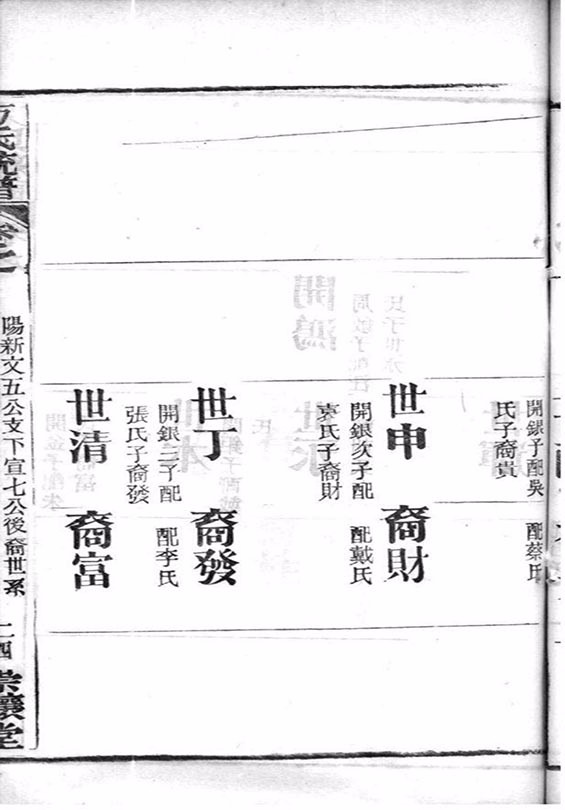 開銀子配吳
氏子裔貴
配蔡氏
世申
開銀次子配
袁氏子裔財
裔財
配戴氏
世丁
開銀三子配
張氏子裔發
裔發
配李氏
世清
裔富
方氏統譜
卷之
陽新文五公支下宣七公後裔世系
二四
崇讓堂